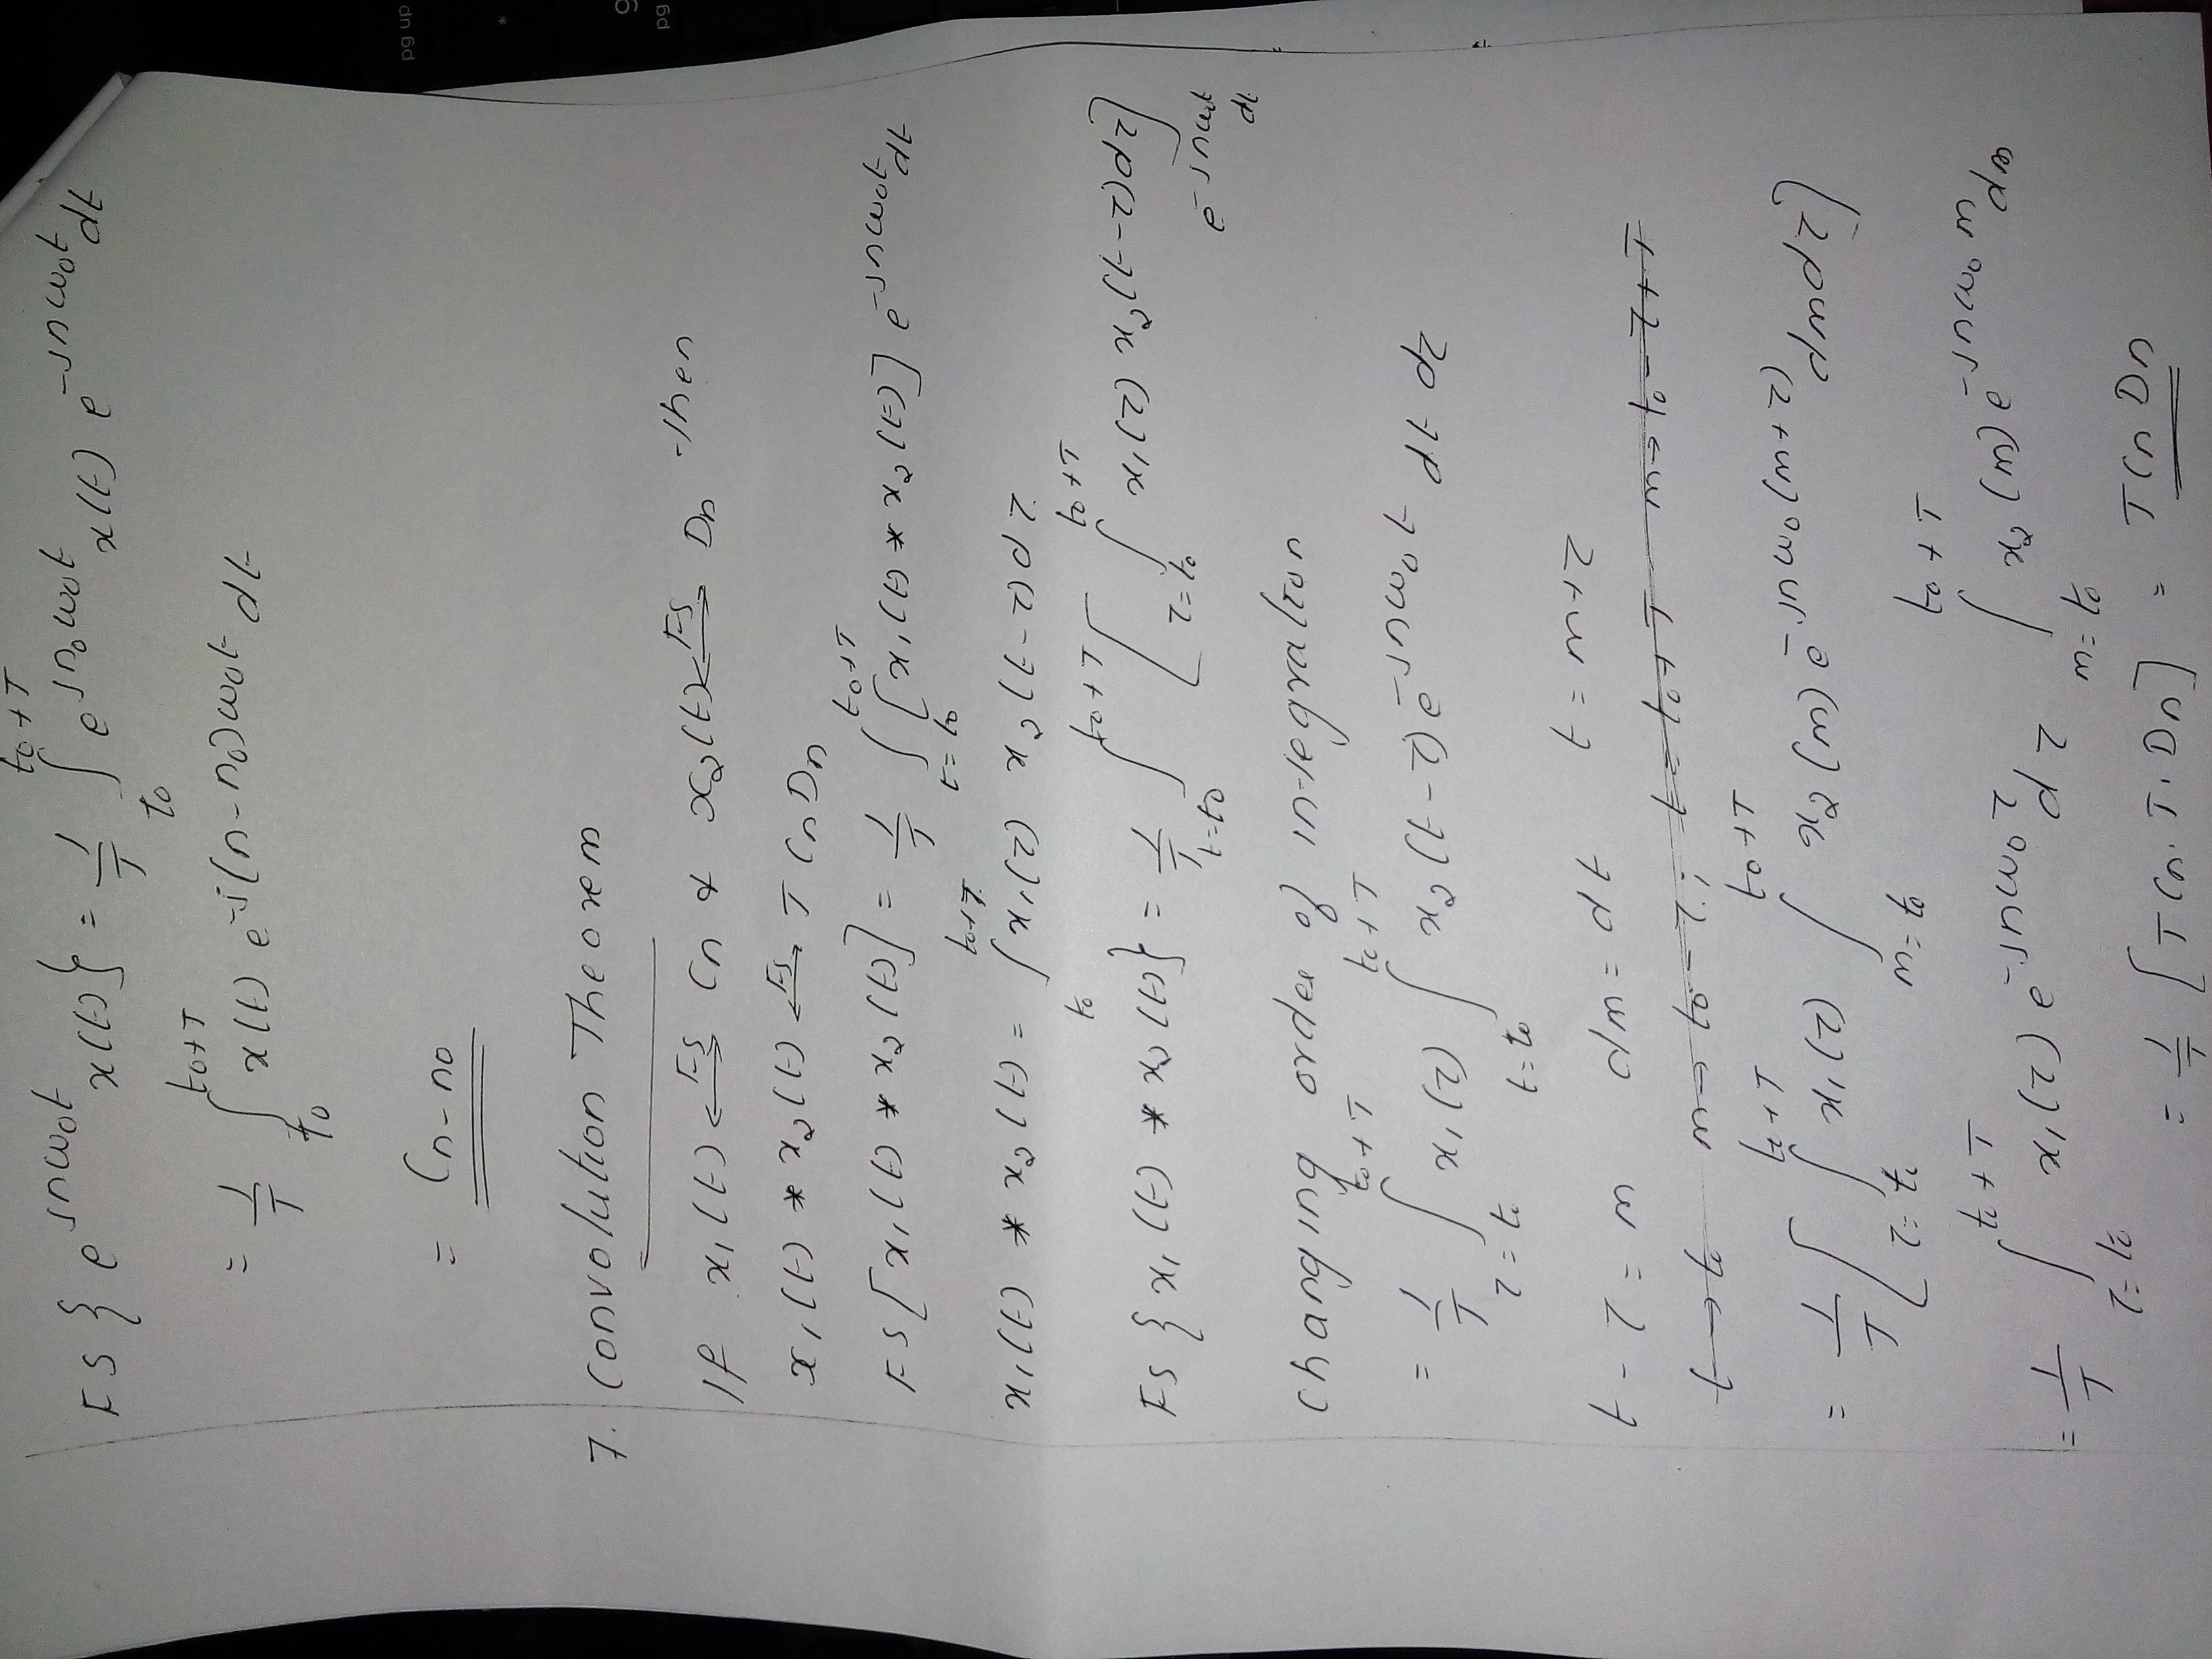 FS { e^{jnω₀t} x(t) } = 1/T ∫_{t₀}^{t₀+T} e^{jn₀ω₀t} x(t) e^{-jnω₀t} dt
= 1/T ∫_{t₀}^{t₀+T} x(t) e^{-j(n-n₀)ω₀t} dt
= C_{n-n₀}
7. Convolution Theorem
If x₁(t) ⟷^{FS} Cn & x₂(t) ⟷^{FS} Dn then
x₁(t) * x₂(t) ⟷^{FS} T Cn Dn
FS [x₁(t) * x₂(t)] = 1/T ∫_{t=t₀}^{t₀+T} [x₁(t) * x₂(t)] e^{-jnω₀t} dt
x₁(t) * x₂(t) = ∫_{t₀}^{t₀+T} x₁(τ) x₂(t-τ) dτ
FS { x₁(t) * x₂(t) } = 1/T ∫_{t=t₀}^{t₀+T} [ ∫_{τ=t₀}^{t₀+T} x₁(τ) x₂(t-τ) dτ ] e^{-jnω₀t} dt
Changing order of integration
= 1/T ∫_{τ=t₀}^{t₀+T} x₁(τ) ∫_{t=t₀}^{t₀+T} x₂(t-τ) e^{-jnω₀t} dt dτ
t-τ = m dm = dt t = m+τ
t→t₀ m→t₀-τ; t=t₀+T m→t₀-τ+T
= 1/T [ ∫_{τ=t₀}^{t₀+T} x₁(τ) ∫_{m=t₀}^{t₀+T} x₂(m) e^{-jnω₀(m+τ)} dm dτ ]
= 1/T ∫_{τ=t₀}^{t₀+T} x₁(τ) e^{-jnω₀τ} dτ ∫_{m=t₀}^{t₀+T} x₂(m) e^{-jnω₀m} dm
= 1/T [T Cn. T. Dn] = T Cn Dn
pg up
*
9
pg